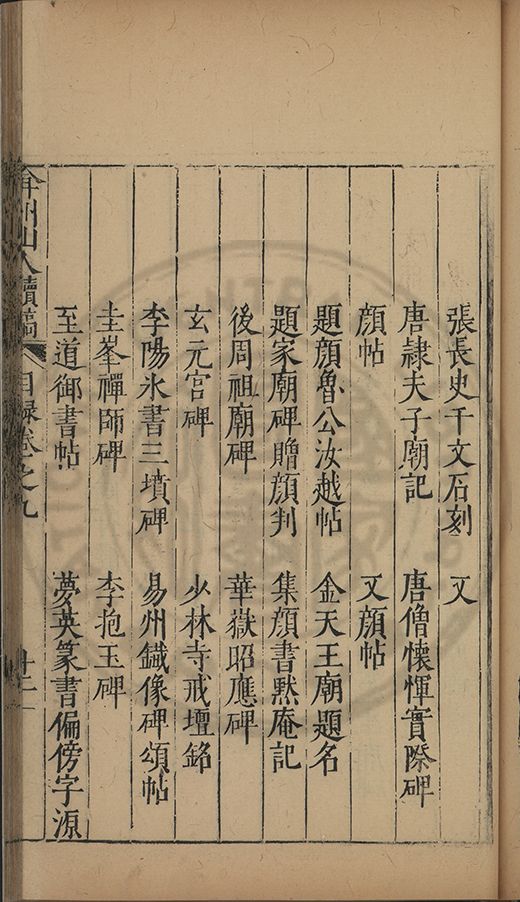 張長史千文石刻　又
唐隸夫子廟記　唐僧懷惲實際碑
顏帖　又顏帖
題顏魯公汝越帖　金天王廟題名
題家廟碑贈顏判　集顏書黙庵記
後周祖廟碑　華嶽昭應碑
玄元宮碑　少林寺戒壇銘
李陽氷書三墳碑　易州鐵像碑頌帖
圭峯禪師碑　李抱玉碑
至道御書帖　夢英篆書偏傍字源
弇州山人續稿　目録卷之九　十二